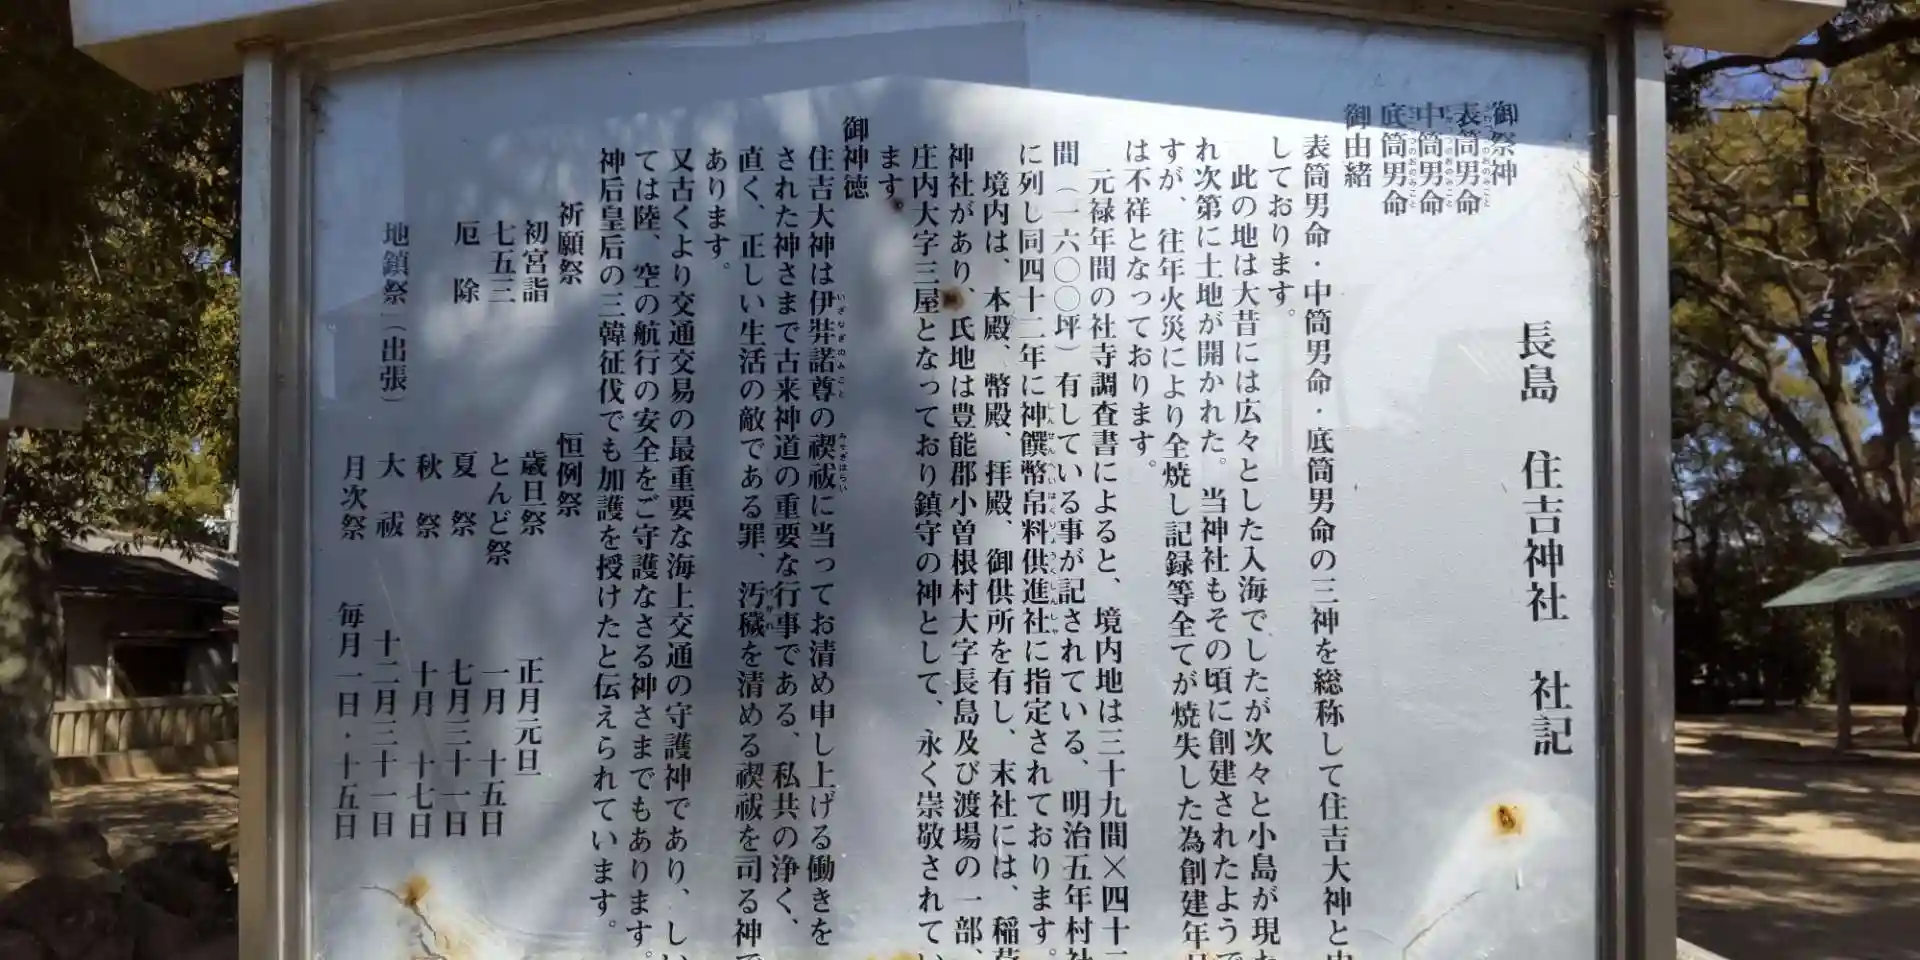 長島 住吉神社 社記
御祭神
表筒男命
中筒男命
底筒男命
御由緒
表筒男命・中筒男命・底筒男命の三神を総称して住吉大神と
しております。
此の地は大昔には広々とした入海でしたが次々と小島が現
れ次第に土地が開かれた。当神社もその頃に創建されたようで
すが、往年火災により全焼し記録等全てが焼失した為創建年
は不祥となっております。
元禄年間の社寺調査書によると、境内地は三十九間×四十
間（一六〇〇坪）有している事が記されている、明治五年村社
に列し同四十二年に神饌幣帛料供進社に指定されております。
境内は、本殿、幣殿、拝殿、御供所を有し、末社には、稲荷
神社があり、氏地は豊能郡小曽根村大字長島及び渡場の一部、
庄内大字三屋となっており鎮守の神として、永く崇敬されてい
ます。
御神徳
住吉大神は伊弉諾尊の禊祓に当ってお清め申し上げる働きを
された神さまで古来神道の重要な行事である、私共の浄く、
直く、正しい生活の敵である罪、汚穢を清める禊祓を司る神で
あります。
又古くより交通交易の最重要な海上交通の守護神であり、しい
ては陸、空の航行の安全をご守護なさる神さまでもあります。
神后皇后の三韓征伐でも加護を授けたと伝えられています。
祈願祭
初宮詣
七五三
厄 除
地鎮祭（出張）
恒例祭
歳旦祭 正月元旦
とんど祭 一月 十五日
夏 祭 七月三十一日
秋 祭 十月 十七日
大 祓 十二月三十一日
月次祭 毎月一日・十五日